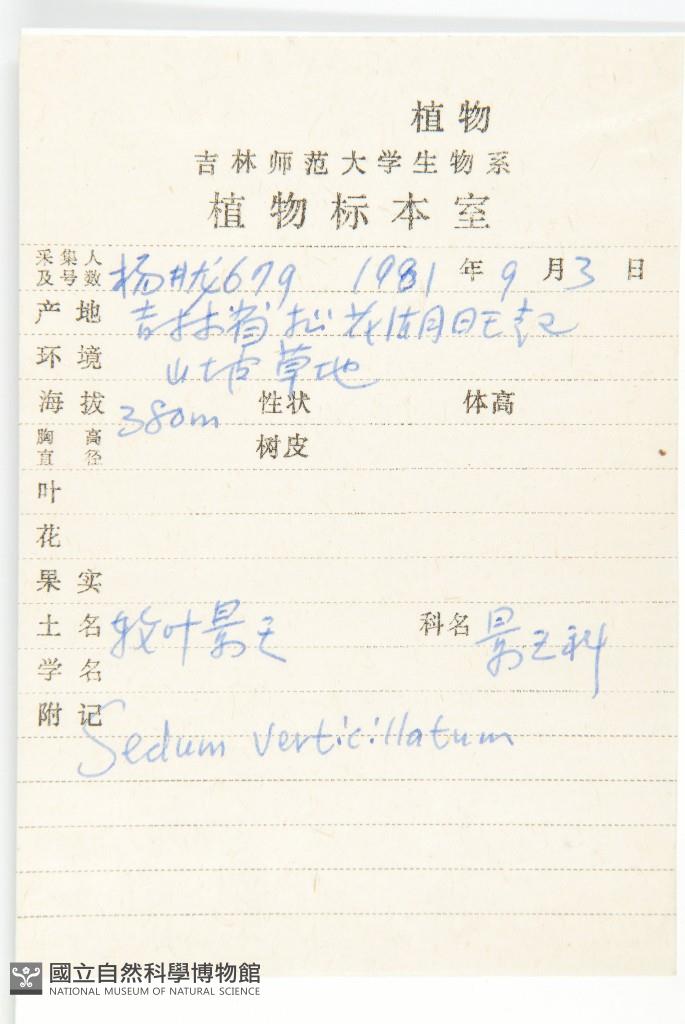 植物
吉林师范大学生物系
植物标本室
采集人及号数 杨 679 1981 年 9 月 3 日
产地 吉林省松花湖旺起
环境 山坡草地
海拔 380m 性状 体高
胸高直径 树皮
叶
花
果实
土名 轮叶景天 科名 景天科
学名
附记 Sedum verticillatum
國立自然科學博物館
NATIONAL MUSEUM OF NATURAL SCIENCE